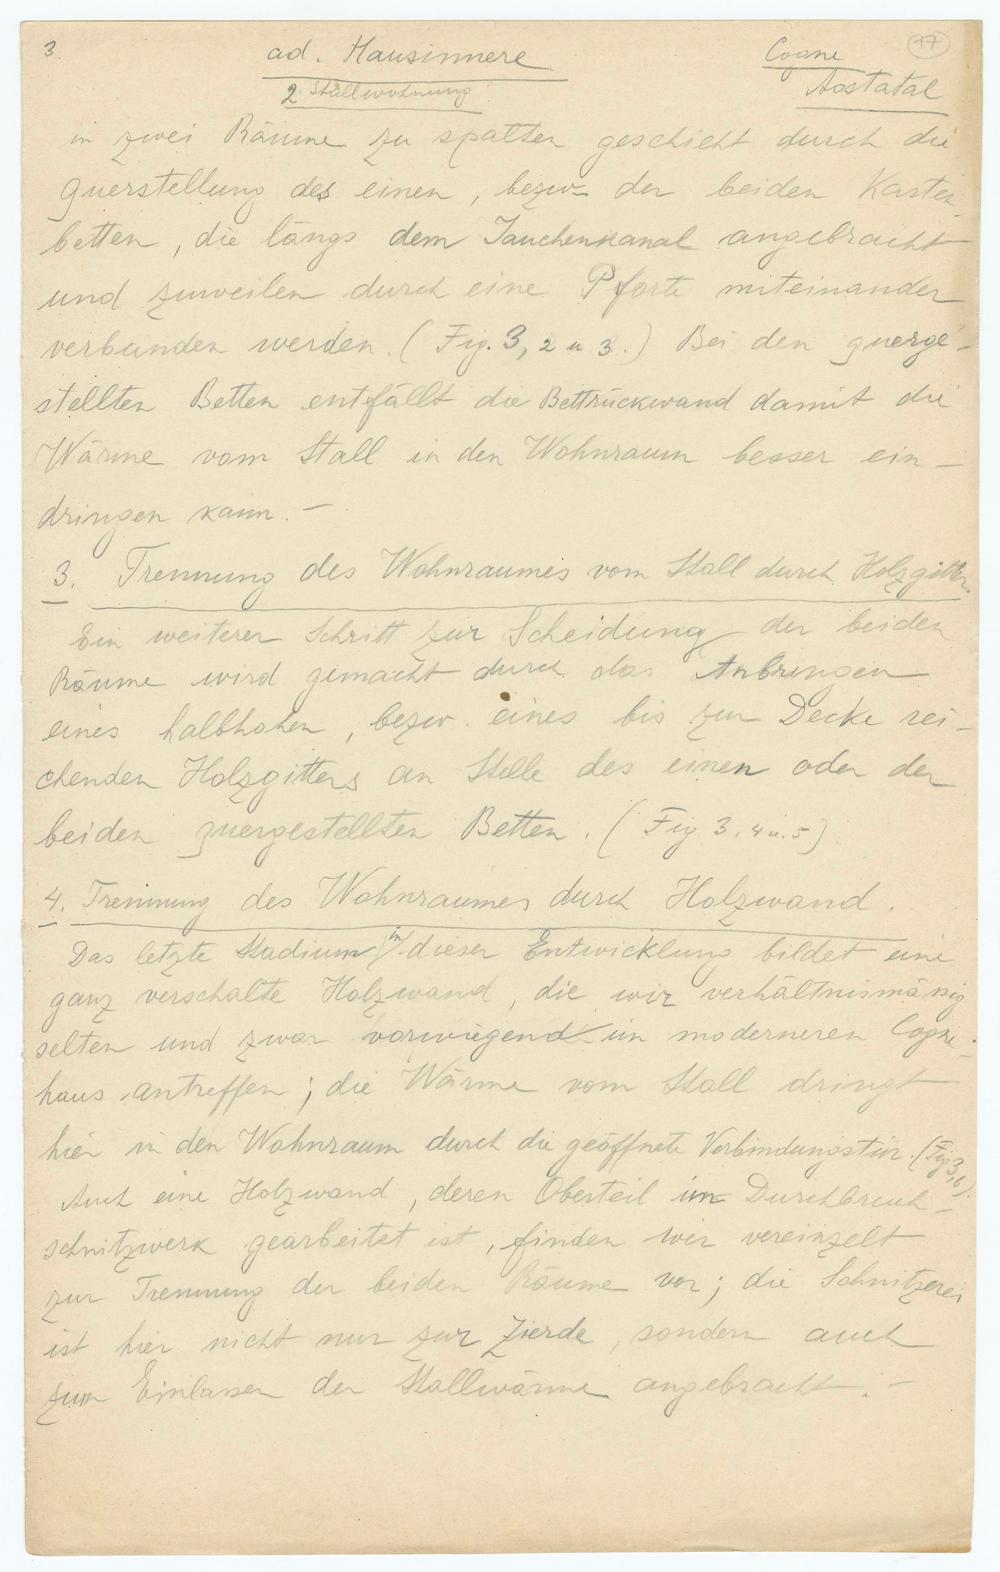 3.
ad. Hausinnere
Cogne
17
2. Stallwohnung
Aostatal
in zwei Räume zu spalten geschieht durch die
Querstellung des einen, bezw. der beiden Kasten-
betten, die längs dem Jauchenkanal angebracht
und zuweilen durch eine Pforte miteinander
verbunden werden. (Fig. 3, 2 u 3.) Bei den querge-
stellten Betten entfällt die Bettrückwand damit die
Wärme vom Stall in den Wohnraum besser ein-
dringen kann. -
3. Trennung des Wohnraumes vom Stall durch Holzgitter.
Ein weiterer Schritt zur Scheidung der beiden
Räume wird gemacht durch das Anbringen
eines halbhohen, bezw. eines bis zur Decke rei-
chenden Holzgitters an Stelle des einen oder der
beiden quergestellten Betten. (Fig 3. 4 u. 5)
4. Trennung des Wohnraumes durch Holzwand.
Das letzte Stadium in dieser Entwicklung bildet eine
ganz verschalte Holzwand, die wir verhältnismässig
selten und zwar vorwiegend im moderneren Cogne-
haus antreffen; die Wärme vom Stall dringt
hier in den Wohnraum durch die geöffnete Verbindungstür. (Fig 3, 6).
Auch eine Holzwand, deren Oberteil in Durchbruch-
schnitzwerk gearbeitet ist, finden wir vereinzelt
zur Trennung der beiden Räume vor; die Schnitzerei
ist hier nicht nur zur Zierde, sondern auch
zum Einlassen der Stallwärme angebracht. -